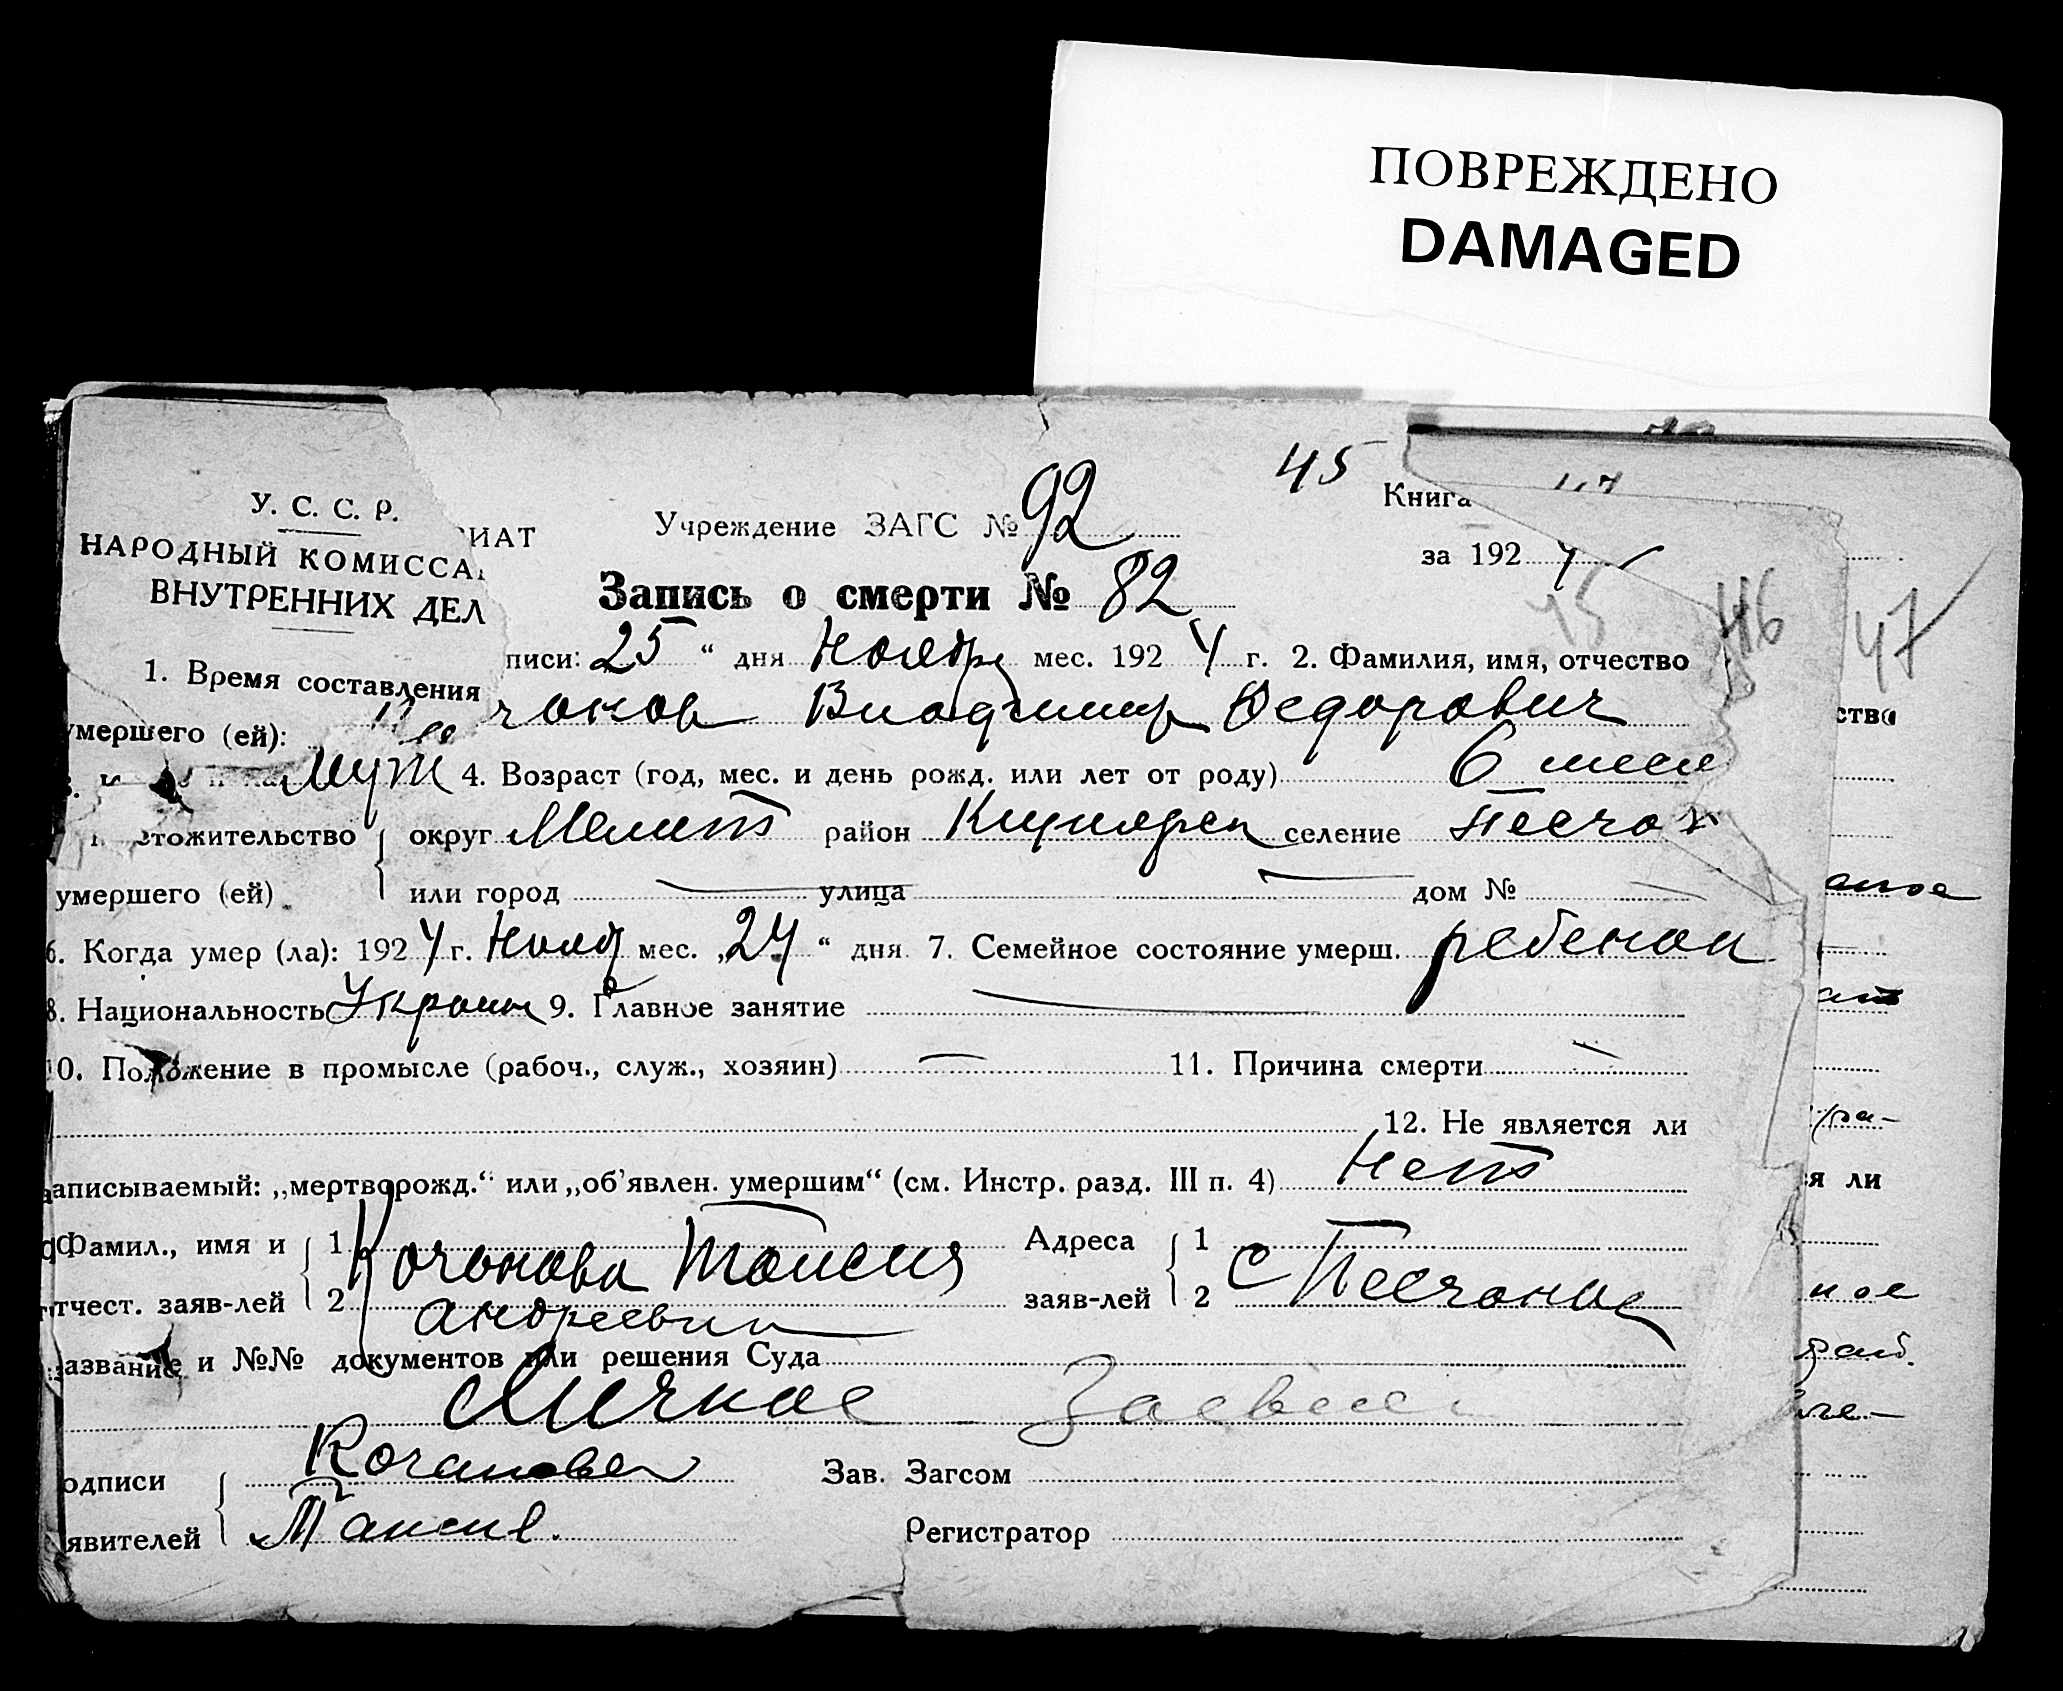 ПОВРЕЖДЕНО
DAMAGED
45
У. С. С. Р.
Книга
НАРОДНЫЙ КОМИССА РИАТ Учреждение ЗАГС № 92
за 192 4
ВНУТРЕННИХ ДЕЛ
Запись о смерти № 82
45 46 47
1. Время составления писи: 25 “ дня Ноября мес. 192 4 г. 2. Фамилия, имя, отчество
умершего (ей): чанов Владимир Федорович
Муж 4. Возраст (год, мес. и день рожд. или лет от роду) 6 меся
тожительство округ Мелит район селение Песчан
умершего (ей) или город улица дом №
6. Когда умер (ла): 192 4 г. Нояб мес. „24 “ дня. 7. Семейное состояние умерш. ребенок
8. Национальность Украин 9. Главное занятие
10. Положение в промысле (рабоч., служ., хозяин) 11. Причина смерти
12. Не является ли
аписываемый: „мертворожд.“ или „об'явлен. умершим“ (см. Инстр. разд. III п. 4) Нет
Фамил., имя и 1 Кочанова Таисия Адреса 1 с Песчаное
тчест. заяв-лей 2 Андреевна заяв-лей 2
азвание и №№ документов или решения Суда
Личное
одписи Кочанова Зав. Загсом
явителей Таисия. Регистратор
ство
ся ли
ное